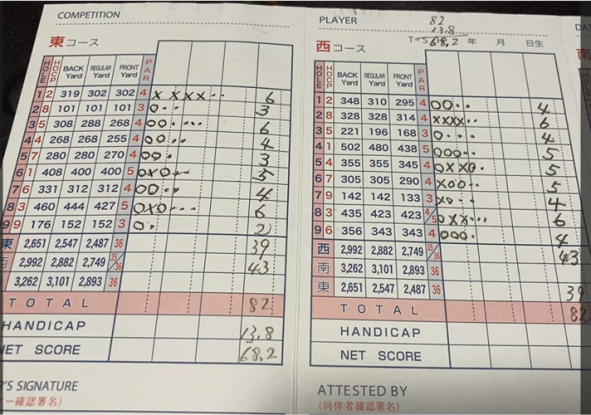 COMPETITION
東コース
HOLE HDCP BACK Yard REGULAR Yard FRONT Yard PAR
1 2 319 302 302 4 xxxx.. 6
2 8 101 101 101 3 o.. 3
3 5 308 288 268 4 oo.... 6
4 4 268 268 255 4 oo.. 4
5 7 280 280 270 4 oo. 3
6 1 408 400 400 5 oxo.. 5
7 6 331 312 312 4 oo.. 4
8 3 460 444 427 5 oxo... 6
9 9 176 152 152 3 o. 2
東 2,651 2,547 2,487 36 39
西 2,992 2,882 2,749 35/36 43
3,262 3,101 2,893 36
TOTAL 82
HANDICAP 13.8
NET SCORE 68.2
'S SIGNATURE
ー確認署名)
PLAYER
82
13.8
68.2 年 月 日生
西コース
HOLE HDCP BACK Yard REGULAR Yard FRONT Yard PAR
1 2 348 310 295 4 oo.. 4
2 8 328 328 314 4 xxxx.. 6
3 5 221 196 168 3 o... 4
4 1 502 480 438 5 ooo.. 5
5 4 355 355 345 4 oxxo. 5
6 7 305 305 290 4 xoo.. 5
7 9 142 142 133 3 xo.. 4
8 3 435 423 423 4/5 oxx... 6
9 6 356 343 343 4 ooo. 4
西 2,992 2,882 2,749 35/36 43
南 3,262 3,101 2,893 36
東 2,651 2,547 2,487 36 39
TOTAL 82
HANDICAP
NET SCORE
ATTESTED BY
(同伴者確認署名)
DA
南